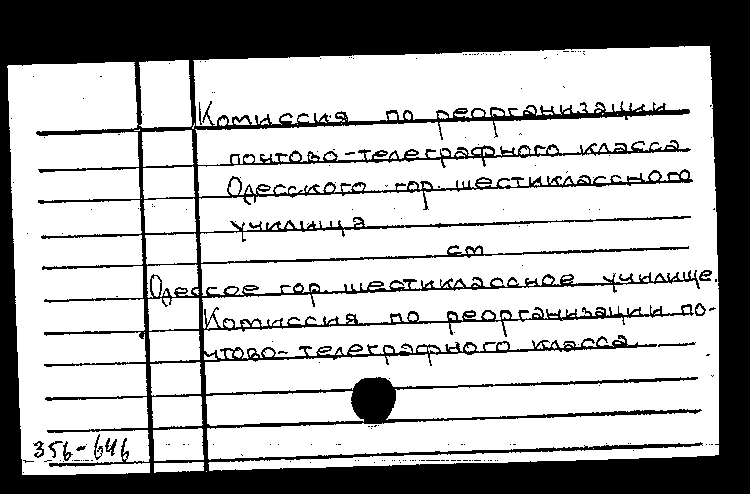 Комиссия по реорганизации
почтово-телеграфного класса
Одесского гор. шестиклассного
училища
см
Одессое гор. шестиклассное училище.
Комиссия по реорганизации по-
чтово-телеграфного класса
356-646